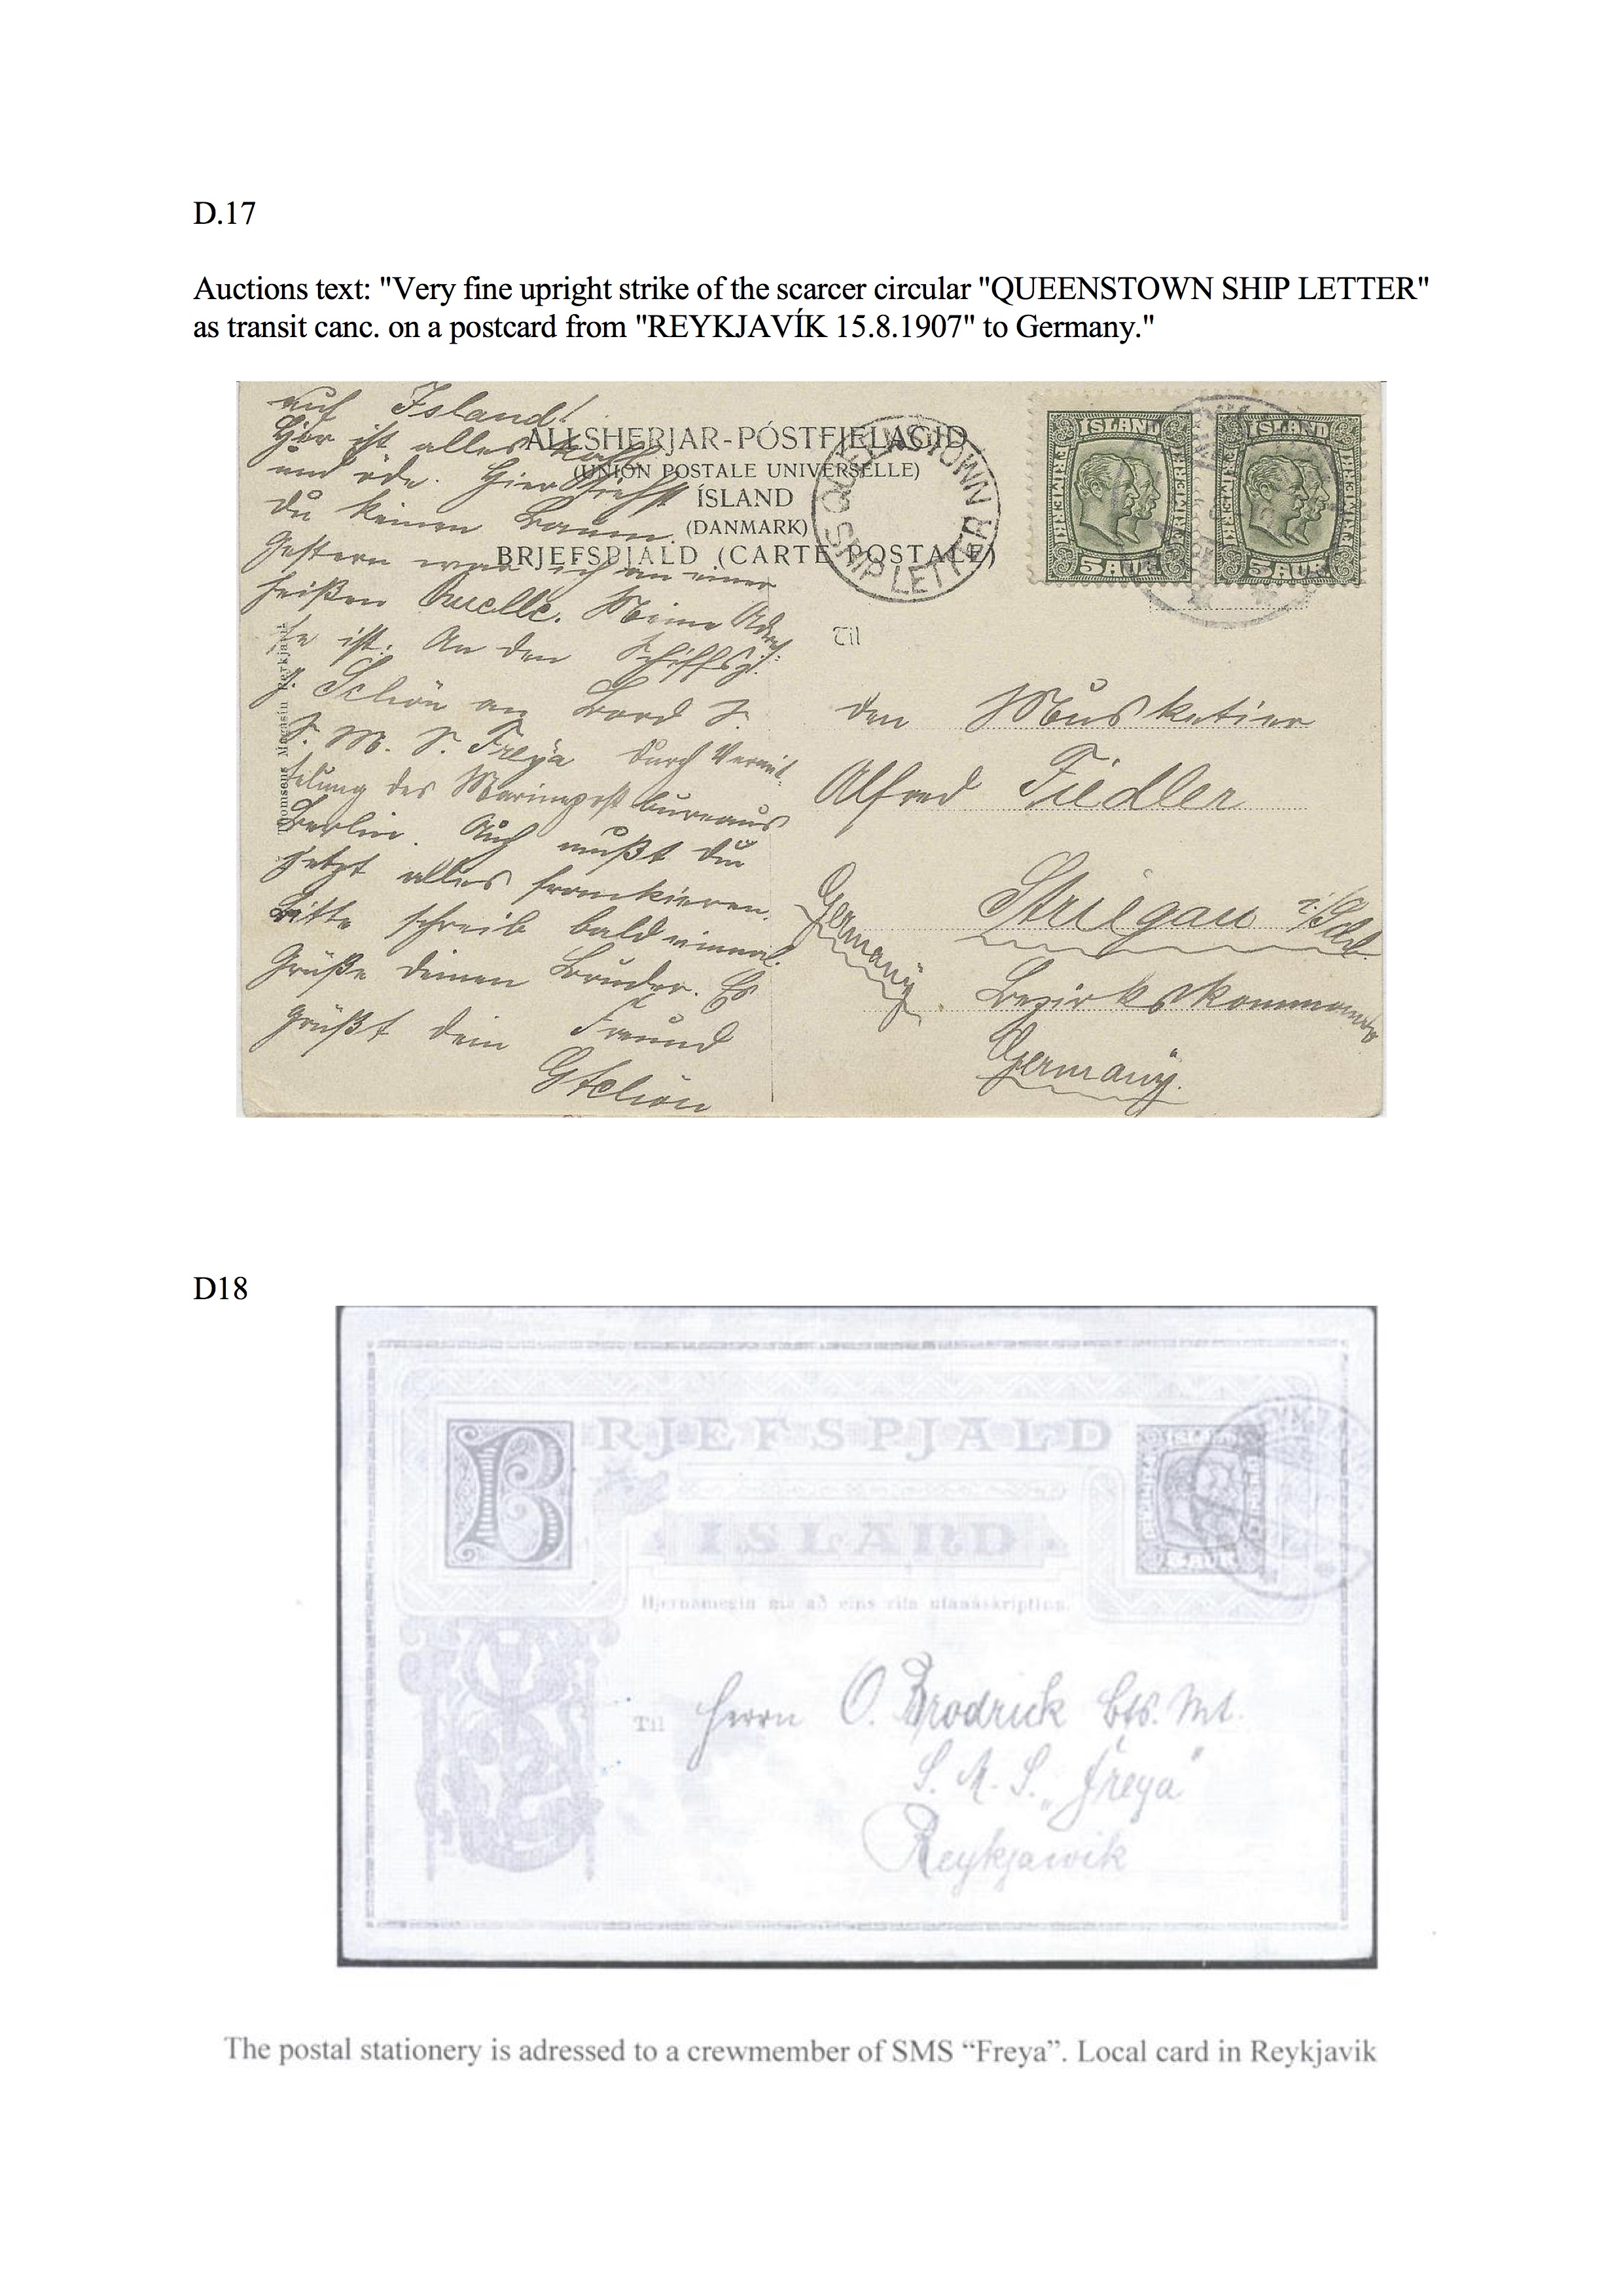 D.17
Auctions text: "Very fine upright strike of the scarcer circular "QUEENSTOWN SHIP LETTER"
as transit canc. on a postcard from "REYKJAVÍK 15.8.1907" to Germany."
auf Island!
Hier ist alles kahl
und öde. Hier siehst
du keinen Baum.
Gestern war ich an einer
heißen Quelle. Meine Adres-
se ist: An den Schiffsj.
Schön an Bord
S. M. S. Freya durch Vermit-
telung des Marinepostbureaus
Berlin. Auch mußt du
jetzt alles frankieren.
Bitte schreib bald einmal.
Grüße deinen Bruder. Es
grüßt dein Freund
GSchön
Thomsens Magasin Reykjavik
ALLSHERJAR-PÓSTFJELAGIÐ
(UNION POSTALE UNIVERSELLE)
ÍSLAND
(DANMARK)
BRJEFSPJALD (CARTE POSTALE)
QUEENSTOWN
SHIP LETTER
ISLAND
FRIMERKI
5 AUR
ISLAND
FRIMERKI
5 AUR
Til
den Musketier
Alfred Fiedler
Striegau i/Schl.
Bezirkskommando
Germany.
Germany
D18
BRJEFSPJALD
ISLAND
ISLAND
5 AUR
Hjernamegin má að eins rita utanáskriptina.
Til Herrn O. Brodrick Bts. Mt.
S. M. S. „Freya"
Reykjawik
The postal stationery is adressed to a crewmember of SMS “Freya”. Local card in Reykjavik